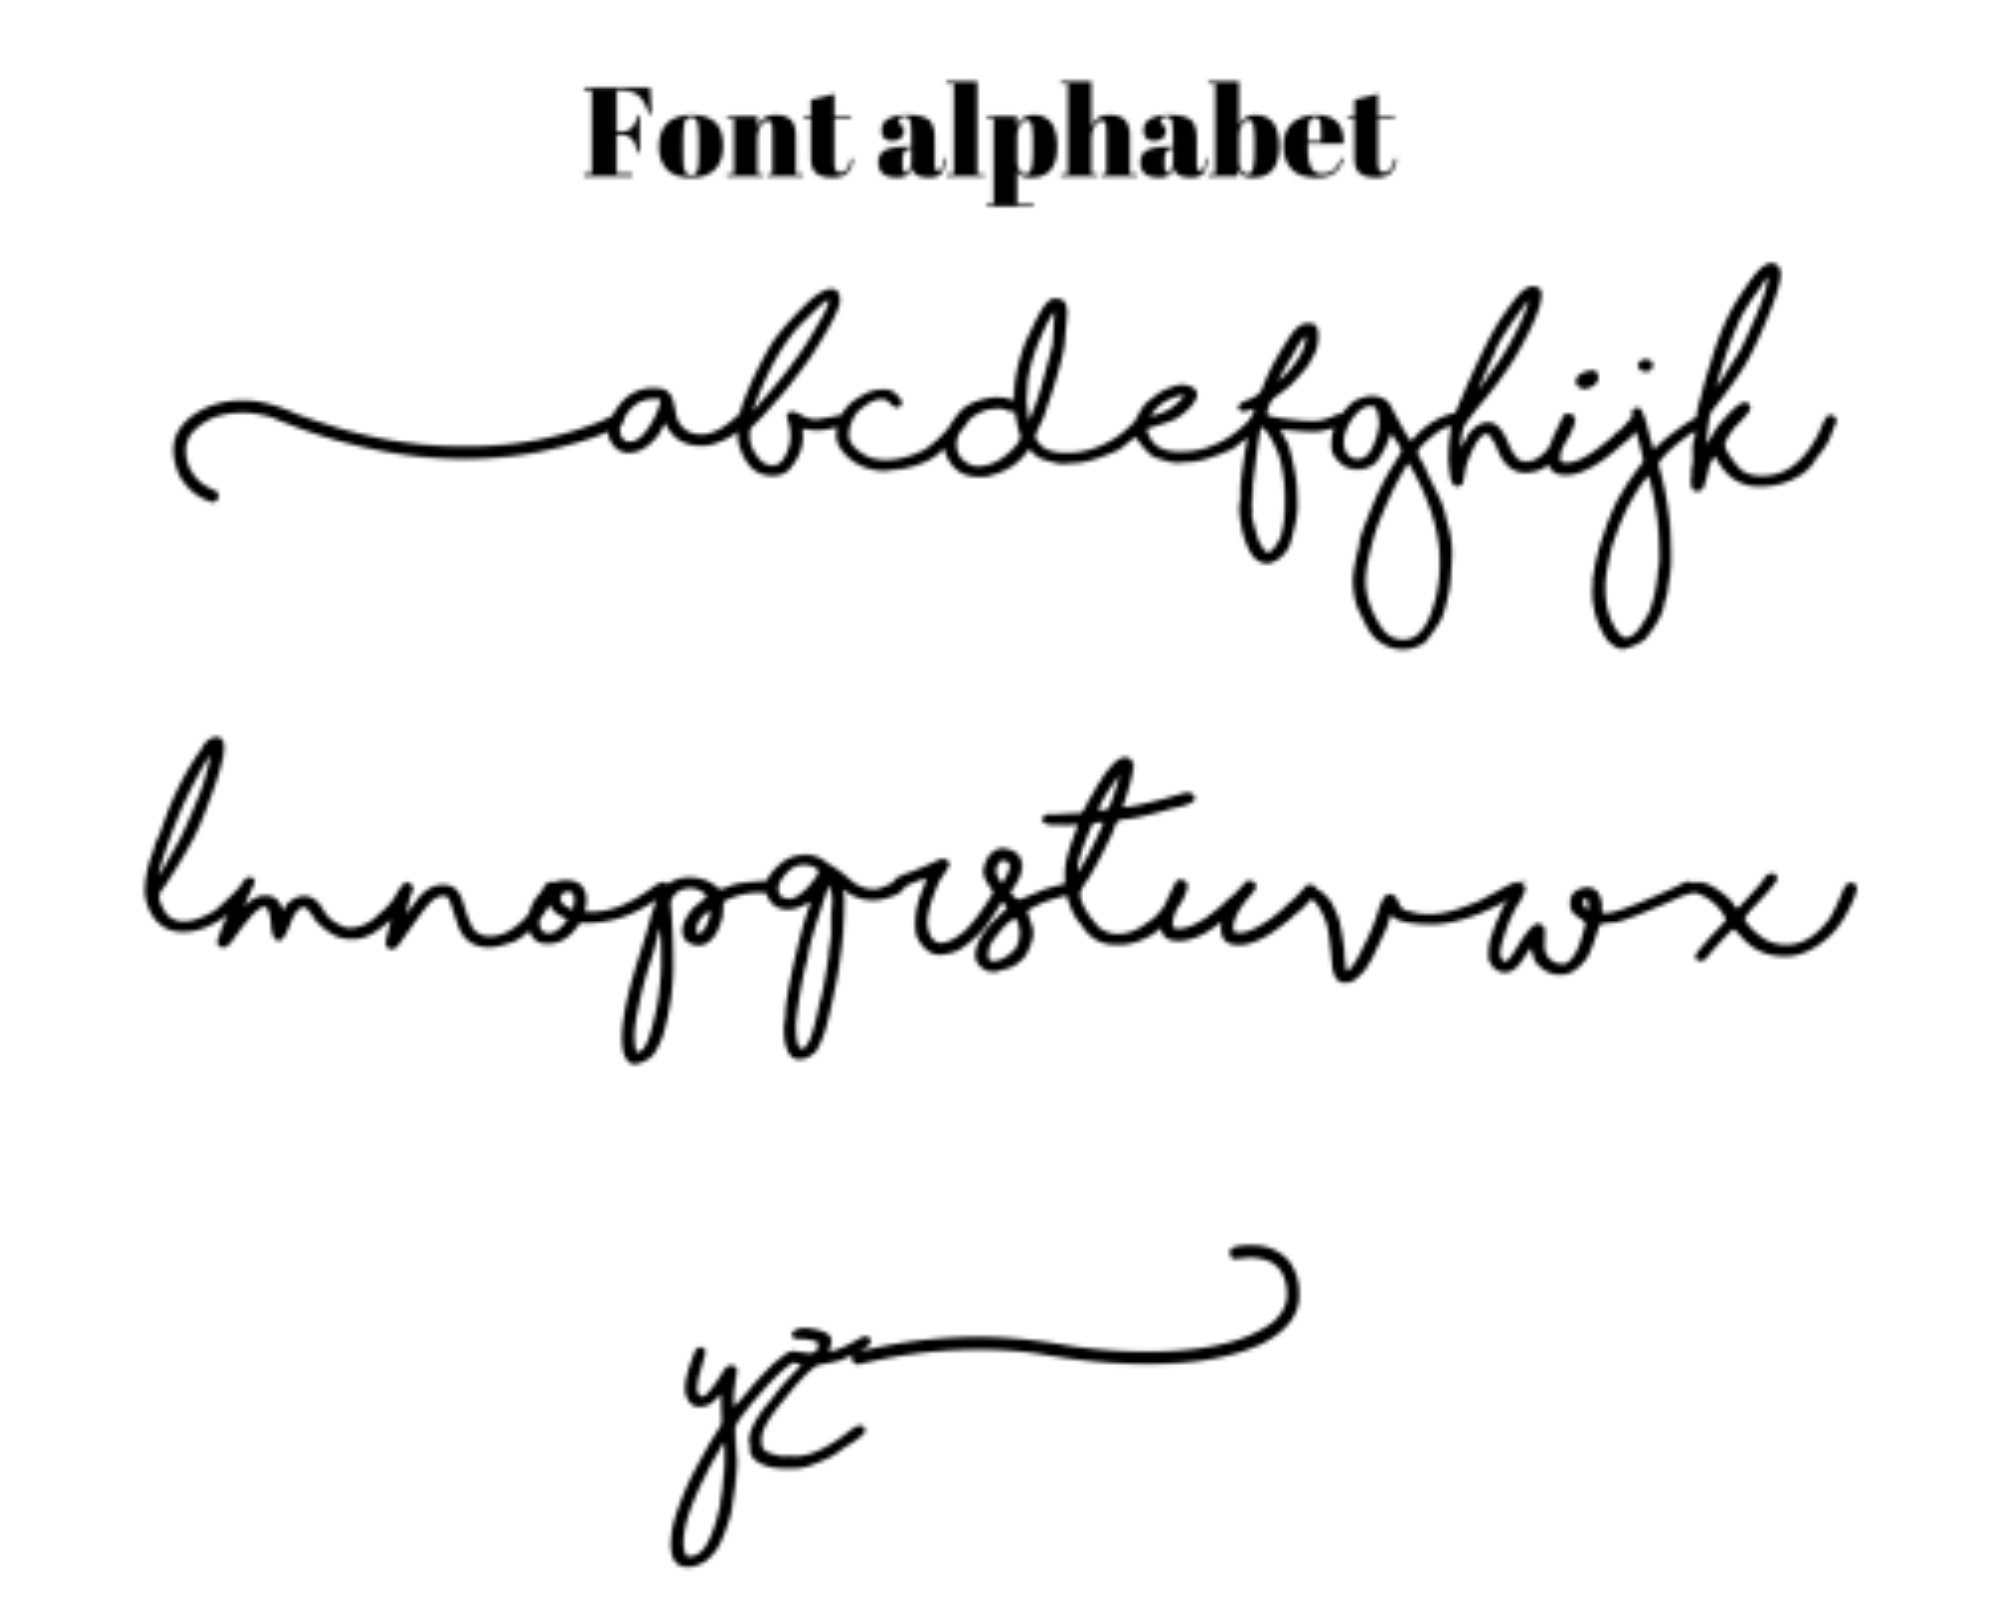 Font alphabet
abcdefghijk
lmnopqrstuvwx
yz